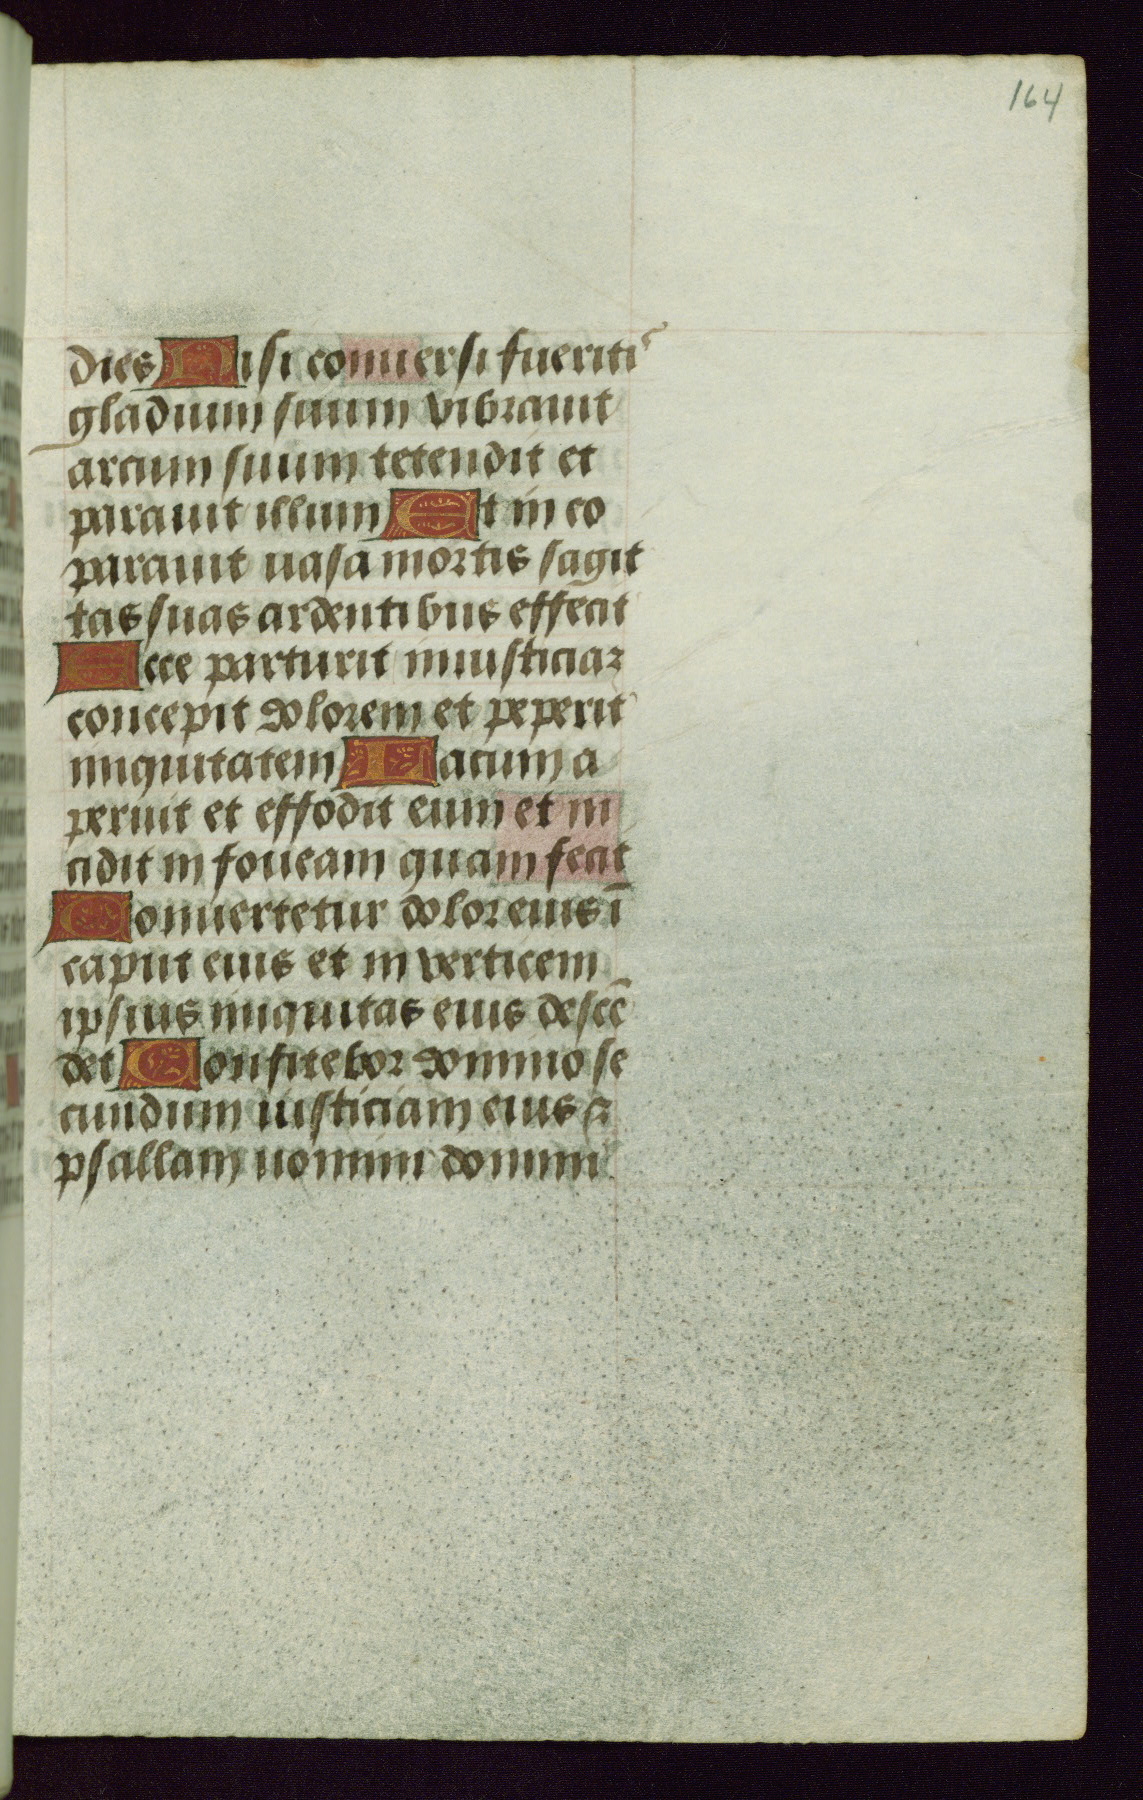 164
dies Nisi conuersi fueriti᷒
gladium suum vibrauit
arcum suum tetendit et
parauit illum Et in eo
parauit uasa mortis sagit
tas suas ardentibus effecit
Ecce parturit iniusticiaꝫ
concepit dolorem et peperit
iniquitatem Lacum a
peruit et effodit eum et in
cidit in foueam quam fecit
Conuertetur dolor eius ī
caput eius et in verticem
ipsius iniquitas eius descē
det Confitebor domino se
cundum iusticiam eius ⁊
psallam nomini domini